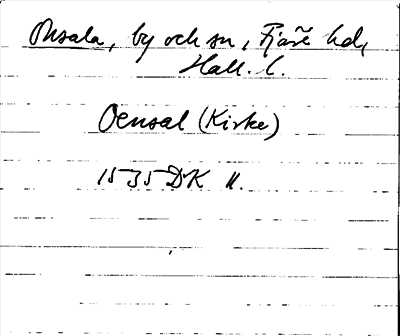 Onsala, by och sn, Fjäre hd,
Hall. l.
Oensal (Kirke)
1535 DK II.